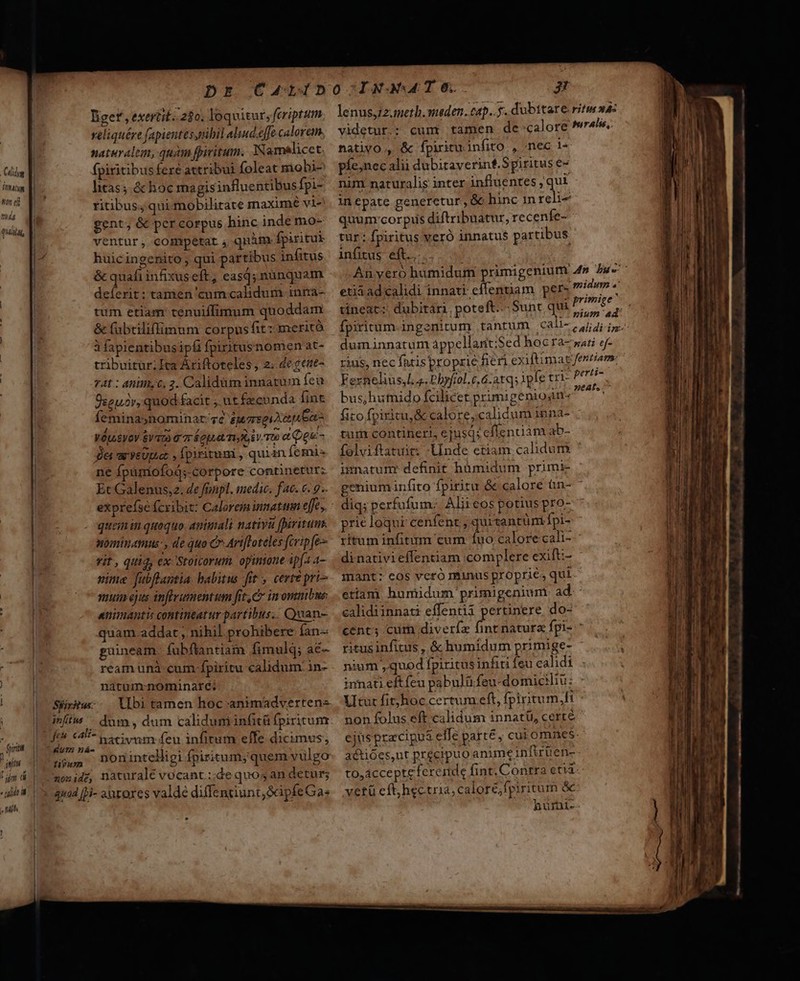 DE CALIDO INNATO. 31
liget, exertit. 280. loquitur, scriptum
reliquére sapientes, nihil aliud esse calorem
naturalem, quàm spiritum. Namalicet
spiritibus feré attribui soleat mobi-
litas; & hoc magis influentibus spi-
ritibus, qui mobilitate maximé vi-
gent, & per corpus hinc inde mo-
ventur, competat, quàm spiritui
huic ingenito, qui partibus insitus
& quasi infixus est, easq; nunquam
deferit: tamen cum calidum inna-
tum etiam tenuissimum quoddam
& subtilissimum corpus sit: meritò
à sapientibus ipsi spiritus nomen at-
tribuitur. Ita Aristoteles, 2. de gene-
rat: anim, c, 3. Calidum innatum seu
θερμὸν, quod facit, ut fœcunda sint
semina, nominat
, spiritum, qui in semi-
ne spumosoq; corpore continetur:
Et Galenus, 2. de simpl. medic. fac. c. 9.
expresse scribit: Calorem innatum esse,
quem in quoquo animali nativũ spiritum
nominamus, de quo & Aristoteles scripse-
rit, quiq, ex Stoicorum opinione ipsa a-
nimæ substantia habitus sit, certè pri-
mum ejus instrumentum sit, & in omnibus
animantis contineatur partibus. Quan-
quam addat, nihil prohibere san-
guineam substantiam simulq; aë-
ream unà cum spiritu calidum in-
natum nominare.
Spiritus Ubi tamen hoc animadverten-
insitus dum, dum calidum insitũ spiritum
seu cali- nativum seu insitum esse dicimus,
dum na- non intelligi spiritum, quem vulgo
tivum
non idẽ, naturalé vocant: de quo, an detur,
quod spi- autores valdé dissentiunt, & ipse Ga-
lenus, 12. meth. meden. cap. 5. dubitare ritus na-
videtur: cum tamen de calore turalis.
nativo, & spiritu insito, nec i-
pse, nec alii dubitaverint. Spiritus e-
nim naturalis inter influentes, qui
in epate generetur, & hinc in reli-
quum corpus distribuatur, recense-
tur: spiritus verò innatus partibus
insitus est.
An verò humidum primigenium An hu-
etiã ad calidi innati essentiam per- midum
tineat: dubitari poteft. Sunt qui primige-
spiritum ingenitum tantum cali- nium ad
dum innatum appellant: Sed hoc ra- calidi in-
rius, nec satis proprié fieri existimat nati es-
Fernelius, l. 4. Physiol. c, 6. atq; ipse tri- sentiam
bus, humido scilicet primigenio, in- perti-
sito spiritu, & calore, calidum inna- neat.
tum contineri, ejusq; essentiam ab-
solvi statuit: Unde etiam calidum
innatum definit humidum primi-
genium insito spiritu & calore un-
diq; perfusum: Alii eos potius pro-
prié loqui censent, qui tantùm spi-
ritum insitum cum suo calore cali-
di nativi essentiam complere existi-
mant: eos verò minus proprié, qui
etiam humidum primigenium ad
calidi innati essentiã pertinere do-
cent; cum diversæ sint naturæ spi-
ritus insitus, & humidum primige-
nium, quod spiritus insiti seu calidi
innati est seu pabulũ seu domiciliũ:
Utut sit, hoc certum est, spiritum, si
non solus est calidum innatũ, certé
ejus præcipuã esse parté, cui omnes
actiões, ut præcipuo animæ instruen-
to, accepte ferendę sint. Contra etiã
verũ est, hęc tria, caloré, spiritum &
humi-